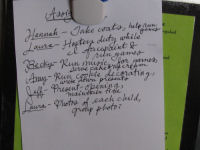 Hannah - Take coats, help run games
Laura - Hostess duty while
I facepaint &
run games
Becky - Run music for games,
serve cake & ice cream
Amy - Run cookie decorating,
write down presents
Jeff - Present opening,
Laura - Photos of each child,
group photo!